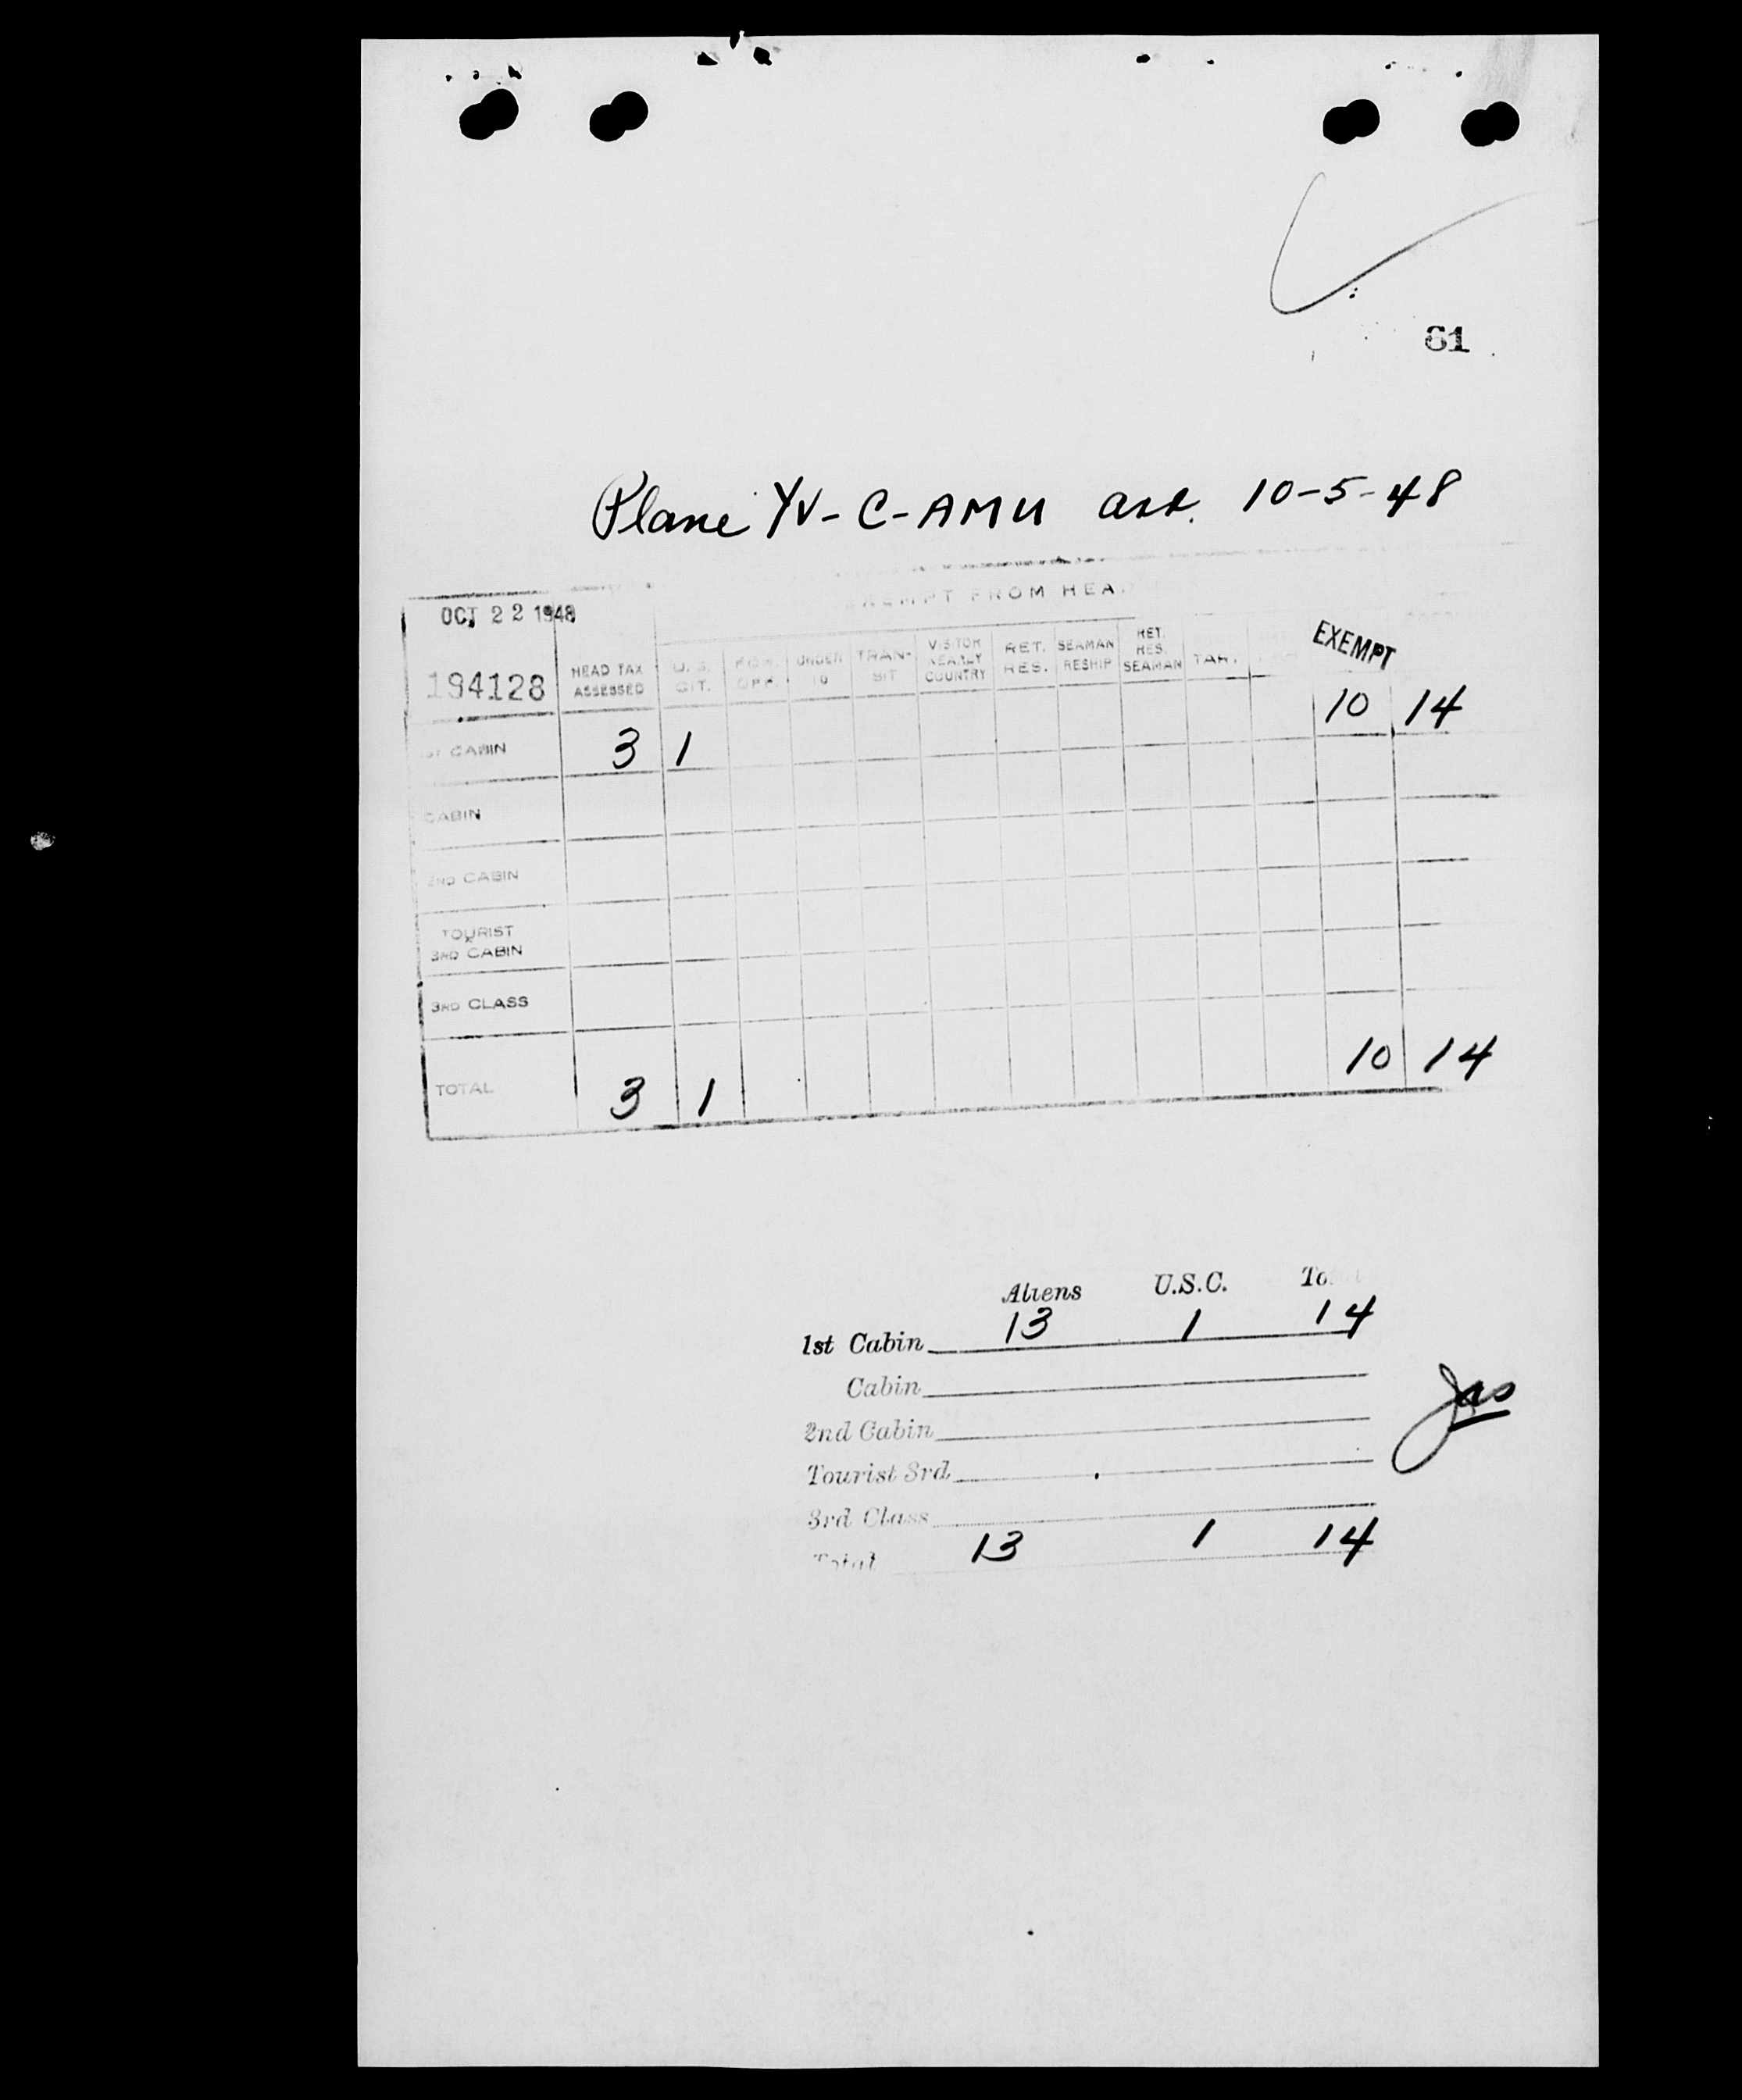 61
Plane YV-C-AMU arr. 10-5-48
OCT 22 1948
EXEMPT FROM HEA
194128
HEAD TAX ASSESSED
U.S. CIT.
FOR. OFF.
UNDER 16
TRAN-SIT
VISITOR NEARLY COUNTRY
RET. RES.
SEAMAN RESHIP
RET. RES. SEAMAN
TAR.
EXEMPT
1ST CABIN 3 1 10 14
CABIN
2ND CABIN
TOURIST
3RD CABIN
3RD CLASS
TOTAL 3 1 10 14
Aliens U.S.C. To
1st Cabin 13 1 14
Cabin
2nd Cabin
Tourist 3rd
3rd Class
Total 13 1 14